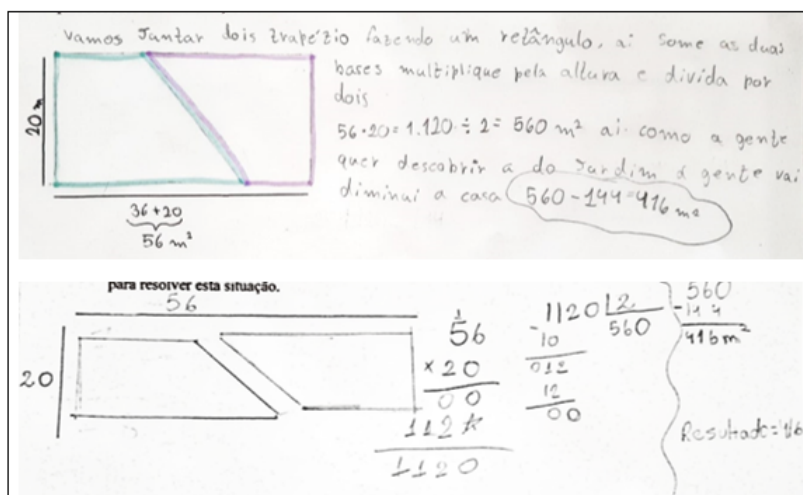 vamos Juntar dois trapézio fazendo um retângulo, ai some as duas
bases multiplique pela altura e divida por
dois
20 m
56·20=1.120÷2=560 m² ai como a gente
quer descobrir a do Jardim a gente vai
diminui a casa 560-144=416 m²
36+20
56 m²
para resolver esta situação.
56
20
1
56
×20
00
112
1120
1120 2
-10 560
012
12
00
560
-144
416 m²
Resultado=416